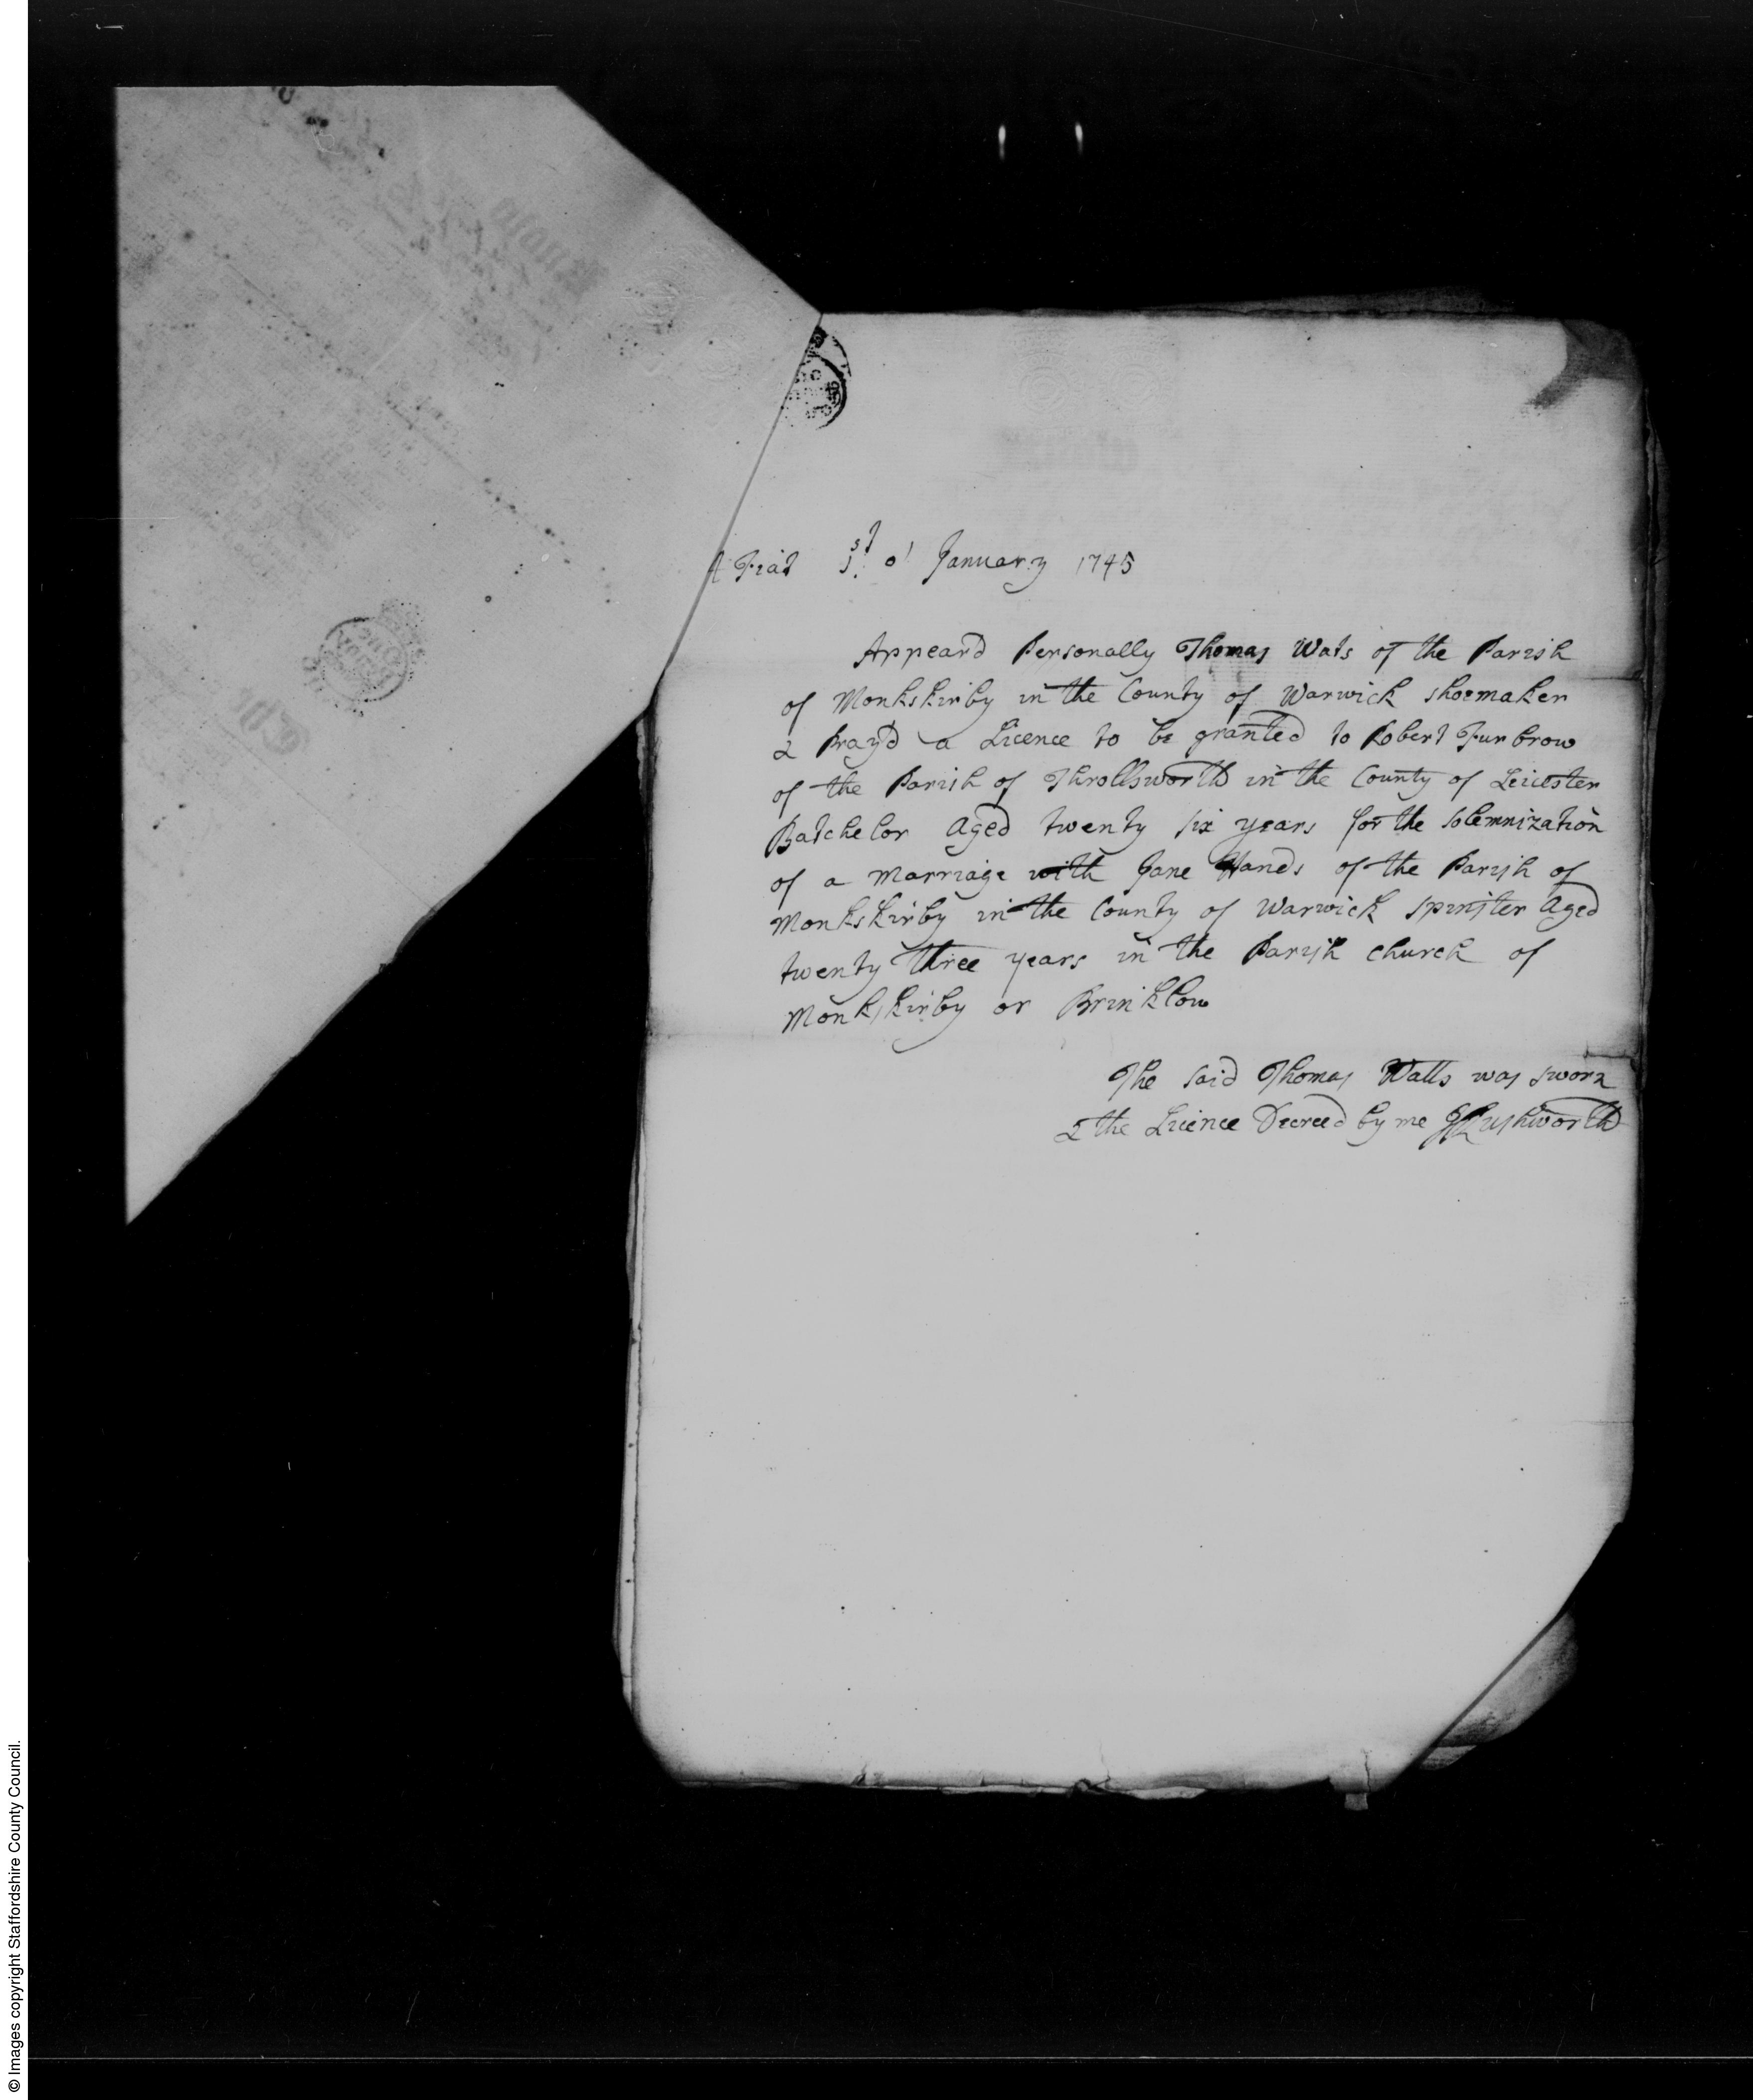 A Fiat 1st of January 1745
Appeard Personally Thomas Wats of the Parish
of Monkskirby in the County of Warwick shoemaker
& Pray'd a Licence to be granted to Robert Furbrow
of the Parish of Throllsworth in the County of Leicester
Batchelor Aged twenty six years for the Solemnization
of a Marriage with Jane Hands of the Parish of
Monkskirby in the County of Warwick Spinster Aged
twenty three years in the Parish Church of
Monkskirby or Brinklow
The said Thomas Watts was sworn
& the Licence Decreed by me Rushworth
© Images copyright Staffordshire County Council.